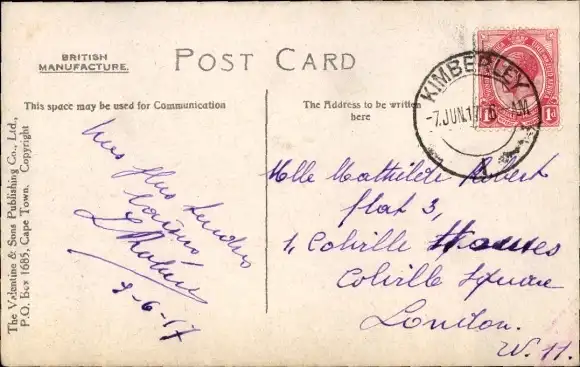 BRITISH
MANUFACTURE.
POST CARD
This space may be used for Communication
The Address to be written
here
The Valentine & Sons Publishing Co., Ltd.,
P.O. Box 1685, Cape Town. Copyright
KIMBERLEY
-7.JUN.17. AM
1d 1d
Mes plus tendres
L Robert
2-6-17
Mlle Mathilde Robert
flat 3,
1, Colville Houses
Colville Square
London.
W. 11.